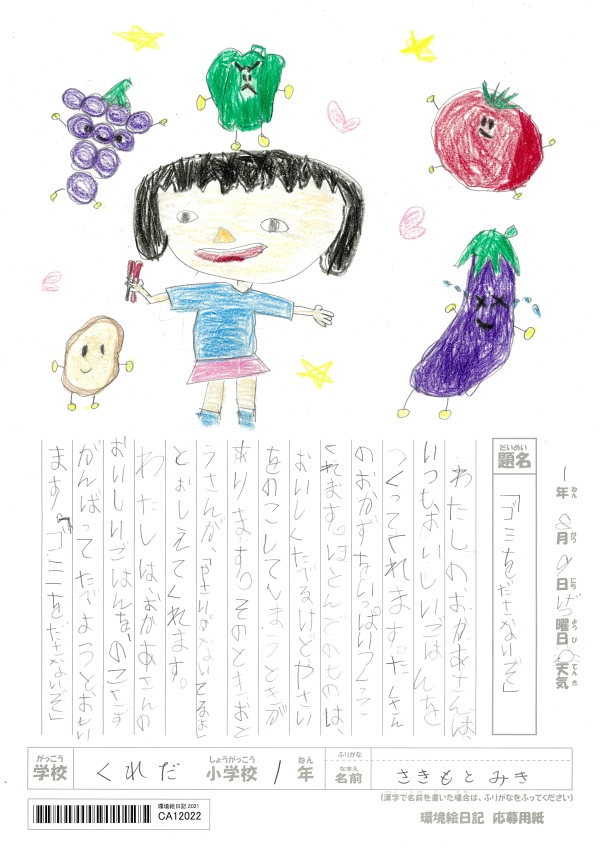 1年8月9日げつ曜日 天気
ねん がつ にち ようび てんき
だいめい
題名
「ゴミをださないぞ」
わたしのおかあさんは、
いつもおいしいごはんを
つくってくれます。たくさん
のおかずをいっぱいつくって
くれます。ほとんどのものは、
おいしくたべるけどやさい
をのこしてしまうときが
あります。そのときおと
うさんが、「やさいがないてるよ」
とおしえてくれます。
わたしは、おかあさんの
おいしいごはんを、のこさず
がんばってたべようとおもい
ます。「ゴミをださないぞ」
がっこう
学校
くれだ
しょうがっこう
小学校
1
ねん
年
ふりがな
なまえ
名前
さきもとみき
(漢字で名前を書いた場合は、ふりがなをふってください)
環境絵日記 2021
CA12022
環境絵日記 応募用紙